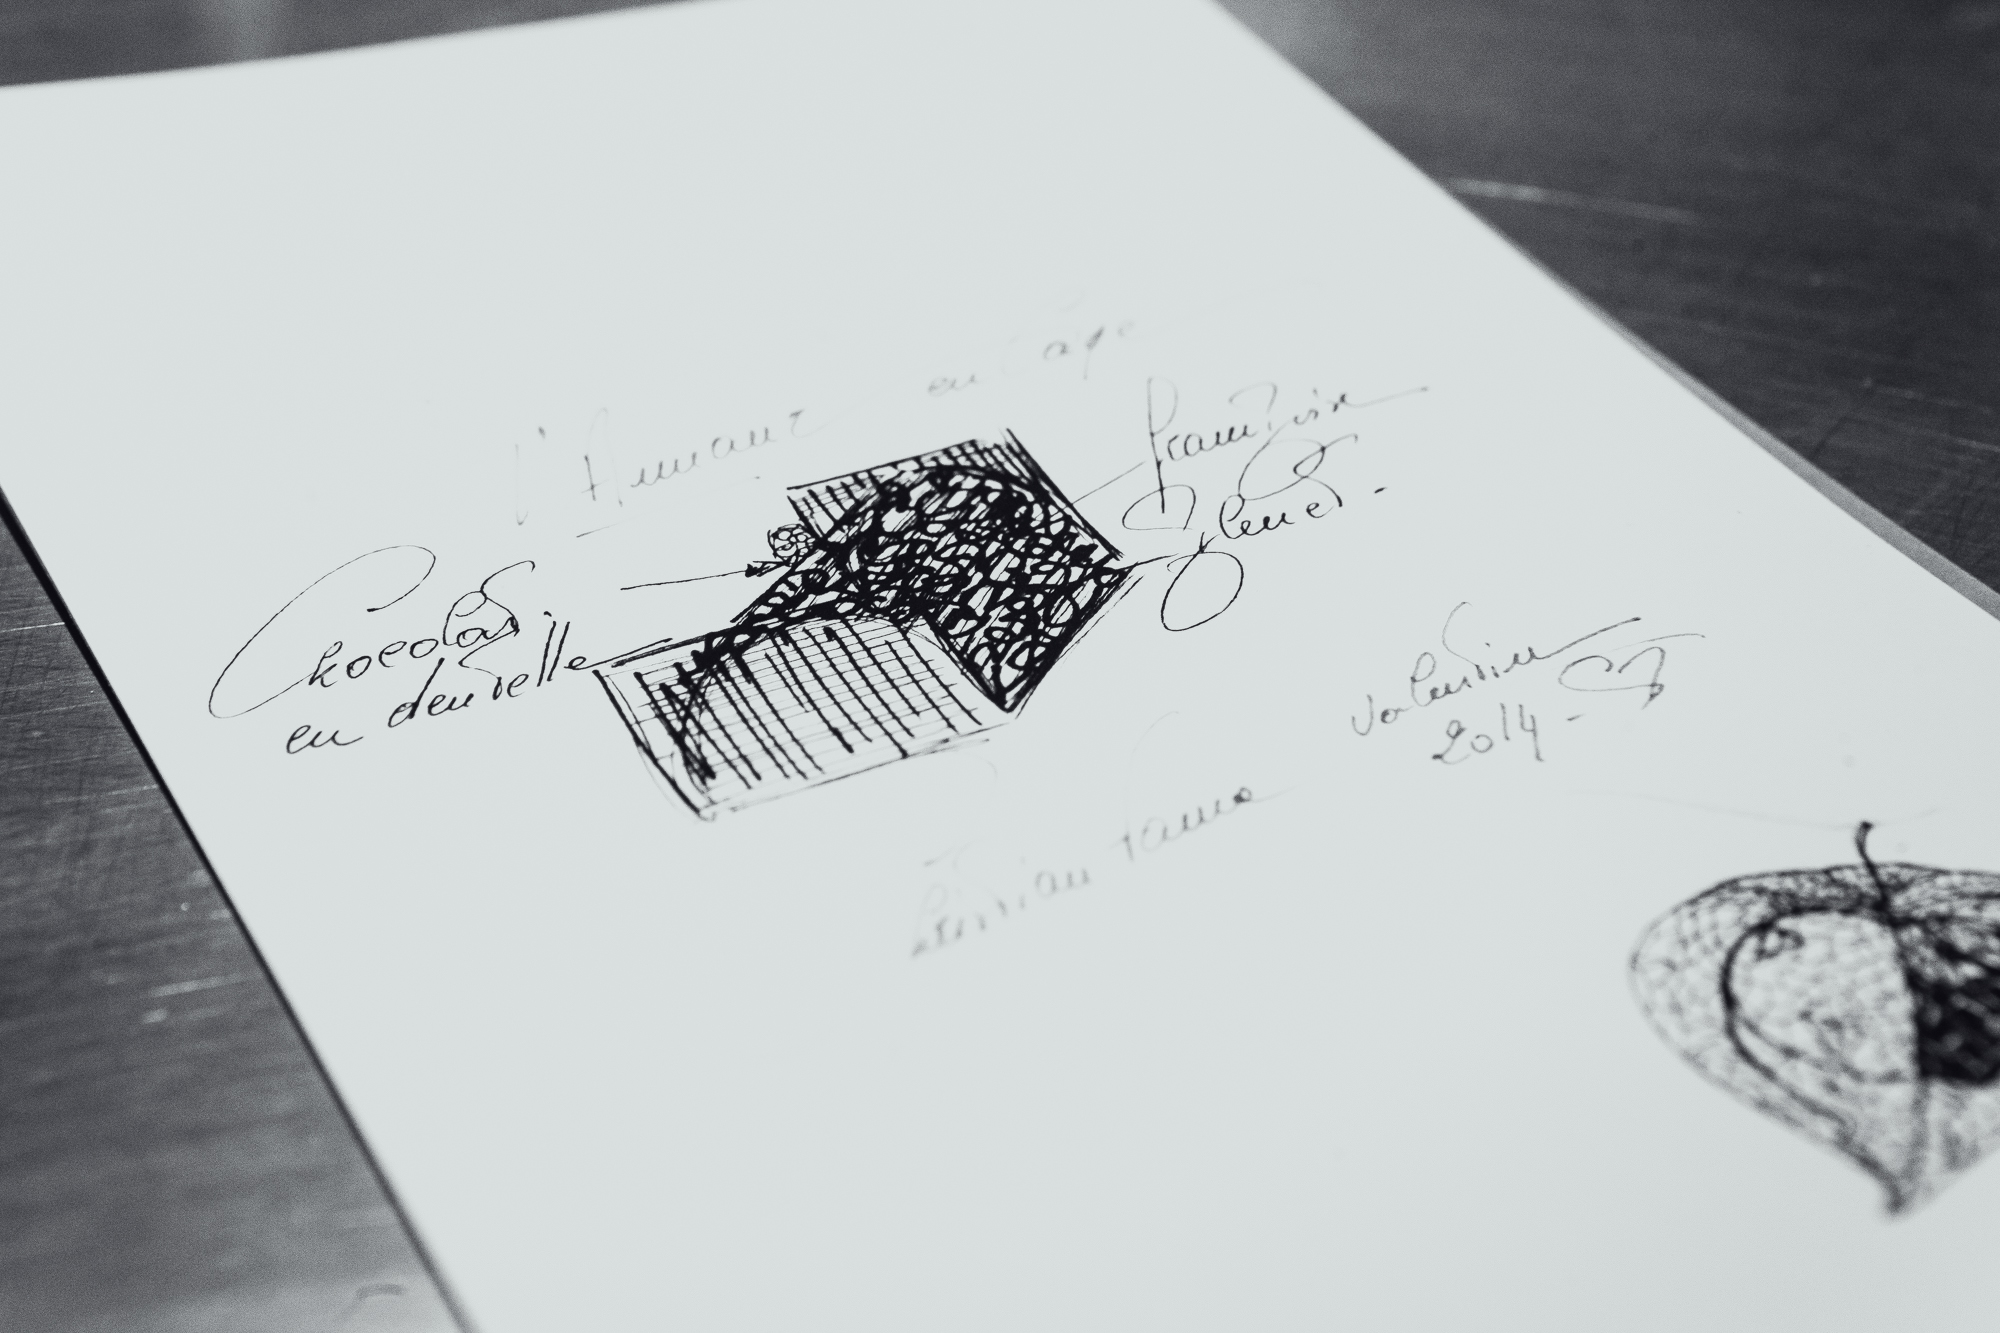 l'Amant en Cage
Framboise
Glacé.
Chocolat
en dentelle
Valentin
2014 -